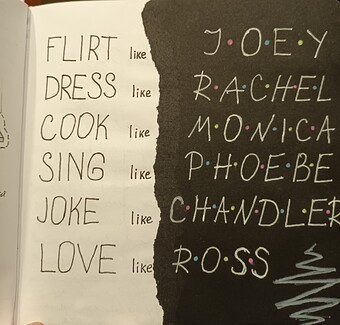 FLIRT like J·O·E·Y
DRESS like R·A·C·H·E·L
COOK like M·O·N·I·C·A
SING like P·H·O·E·B·E
JOKE like C·H·A·N·D·L·E·R
LOVE like R·O·S·S